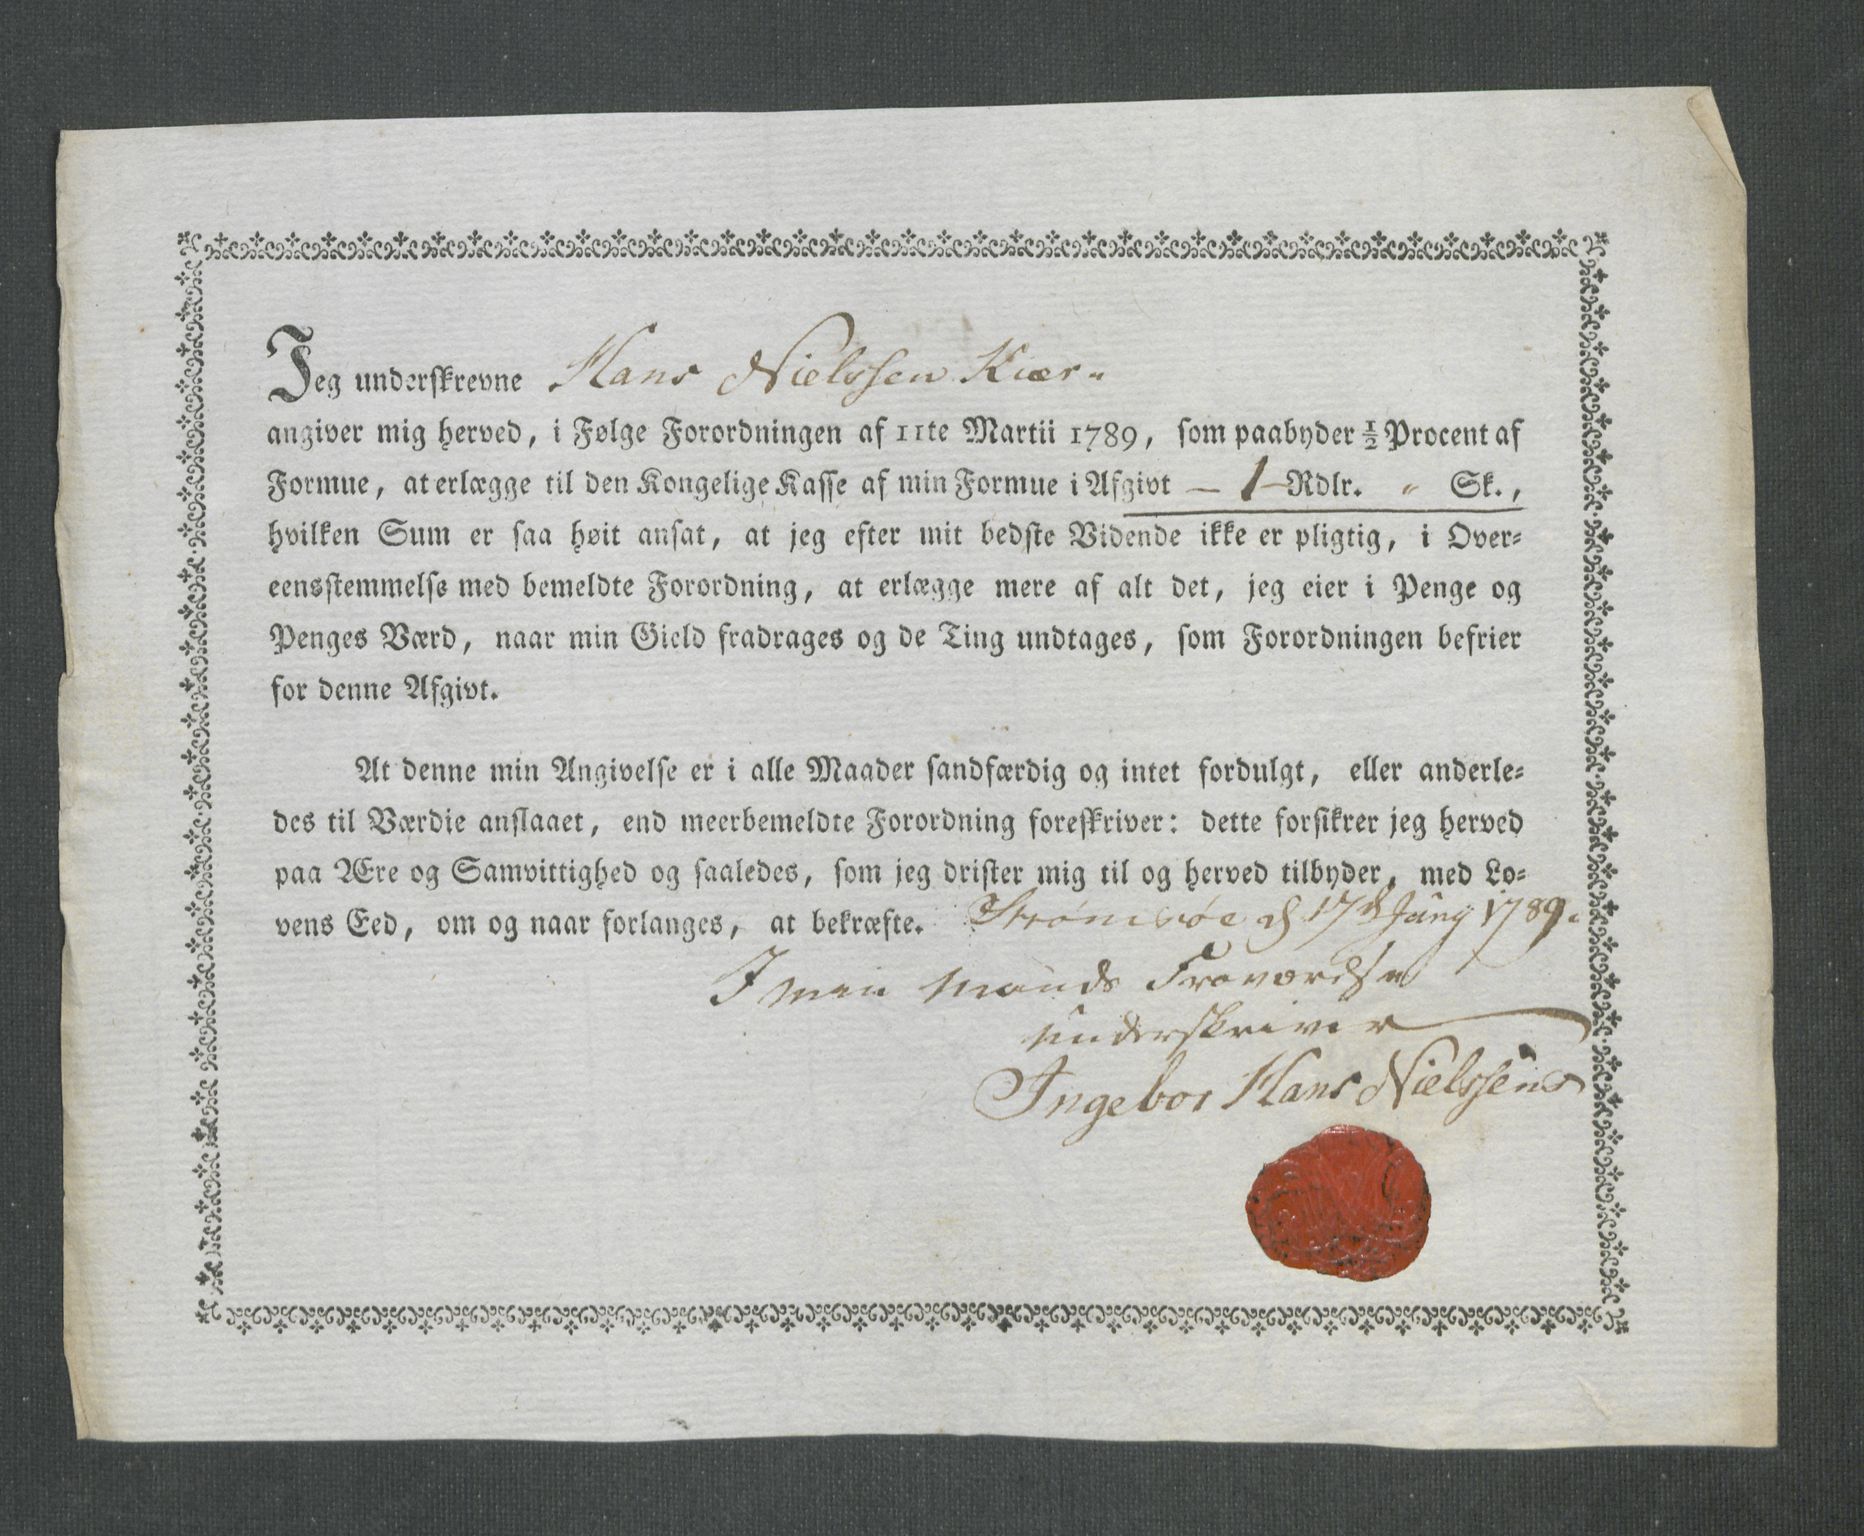 Jeg underskrevne Hans Nielssen Kiær
angiver mig herved, i Følge Forordningen af 11te Martii 1789, som paabyder ½ Procent af
Formue, at erlægge til den Kongelige Kasse af min Formue i Afgivt — 1 — Rdlr. " Sk.,
hvilken Sum er saa høit ansat, at jeg efter mit bedste Vidende ikke er pligtig, i Over=
eensstemmelse med bemeldte Forordning, at erlægge mere af alt det, jeg eier i Penge og
Penges Værd, naar min Gield fradrages og de Ting undtages, som Forordningen befrier
for denne Afgivt.
At denne min Angivelse er i alle Maader sandfærdig og intet fordulgt, eller anderle=
des til Værdie anslaaet, end meerbemeldte Forordning foreskriver: dette forsikrer jeg herved
paa Ære og Samvittighed og saaledes, som jeg drister mig til og herved tilbyder, med Lo=
vens Eed, om og naar forlanges, at bekræfte. Strømsøe d 17d Juny 1789.
I min Mands Fraværelse
underskriver
Ingebor Hans Nielssens